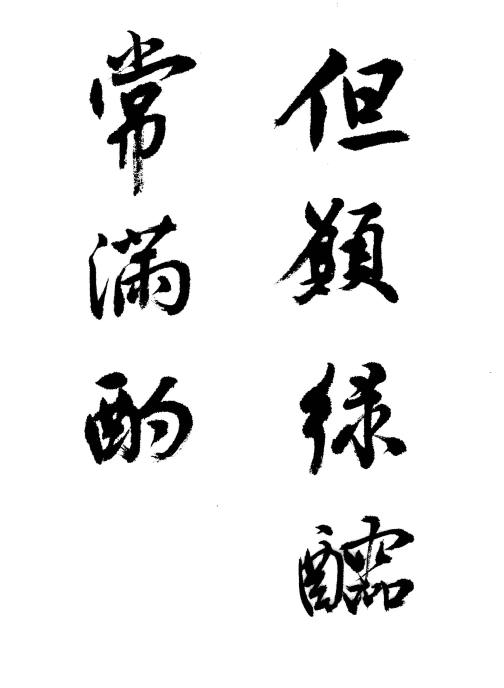 但願綠醽
常滿酌